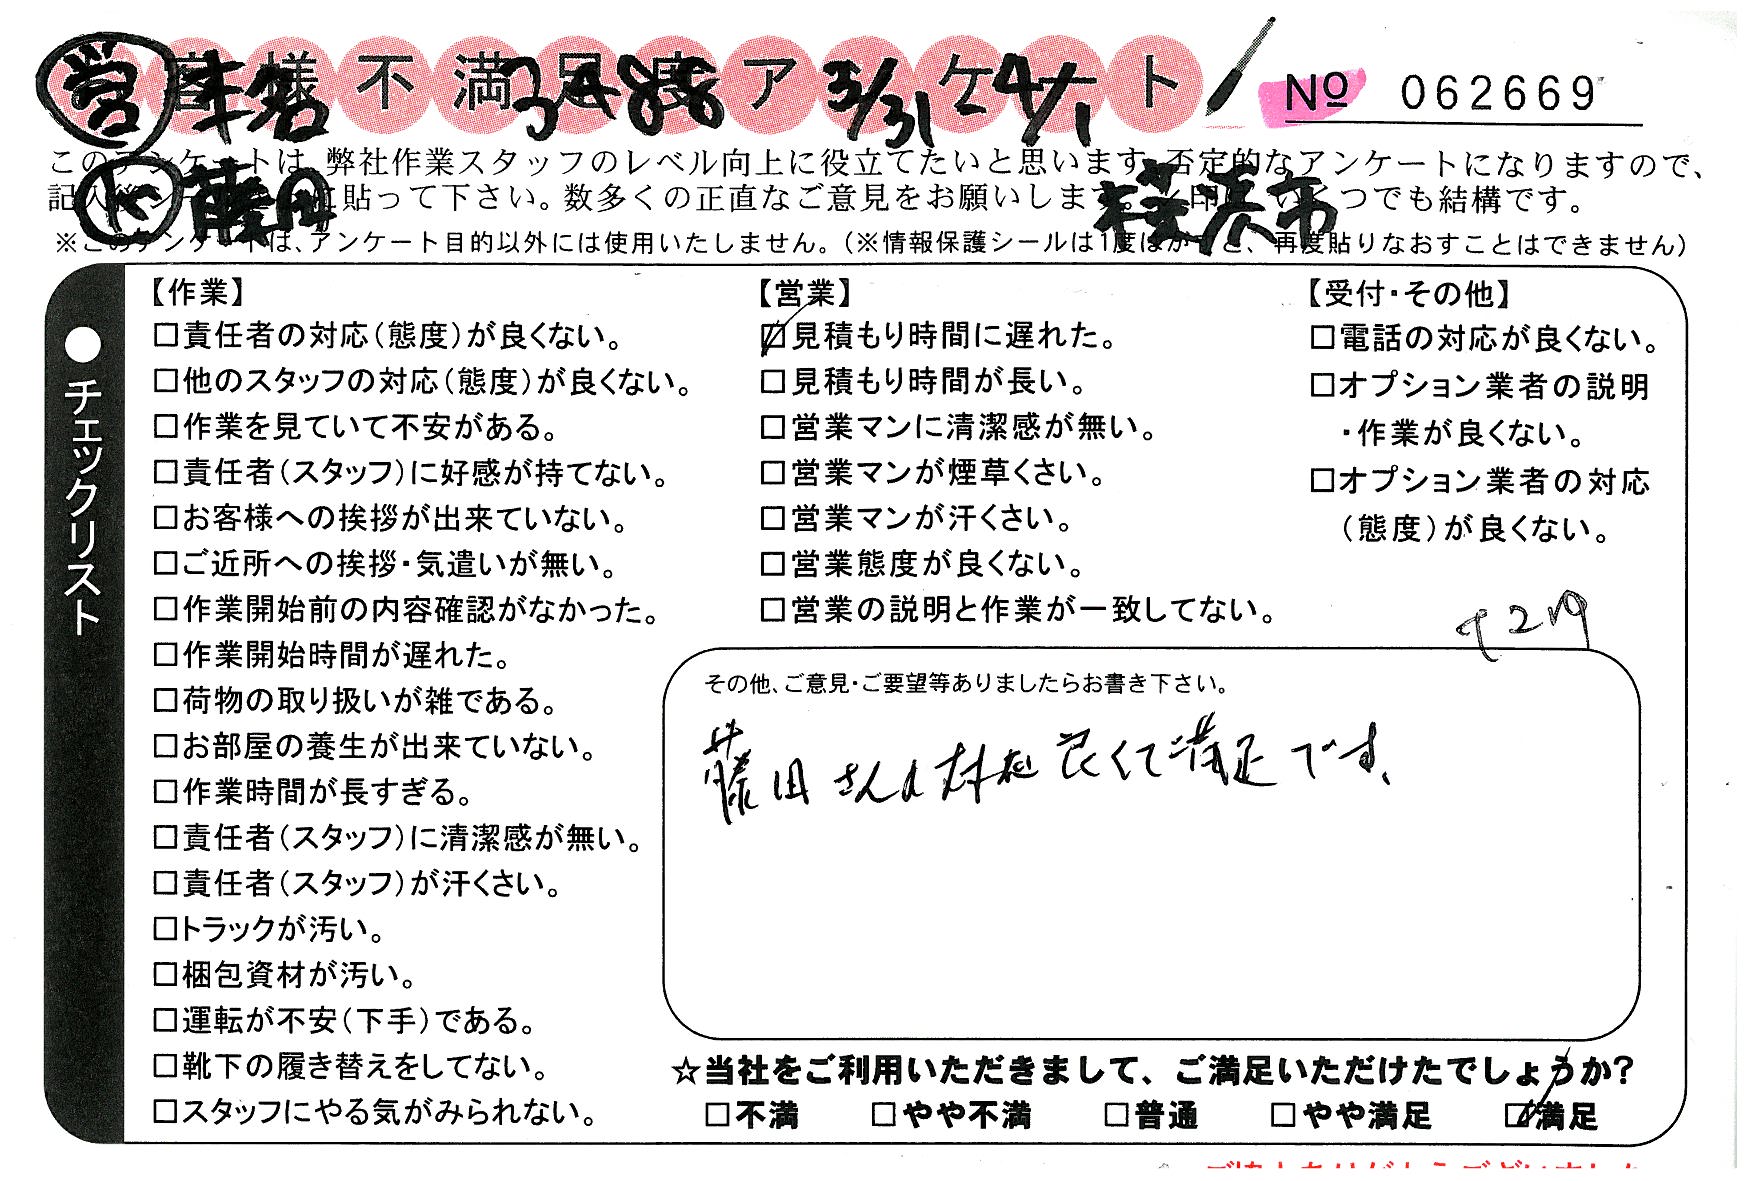 お客様不満足度アンケート
№ 062669
営
3/31 4/1
このアンケートは、弊社作業スタッフのレベル向上に役立てたいと思います。否定的なアンケートになりますので、
に貼って下さい。数多くの正直なご意見をお願いします。
つでも結構です。
藤田
横浜市
※このアンケートは、アンケート目的以外には使用いたしません。（※情報保護シールは1度はがすと、再度貼りなおすことはできません）
●チェックリスト
【作業】
□責任者の対応（態度）が良くない。
□他のスタッフの対応（態度）が良くない。
□作業を見ていて不安がある。
□責任者（スタッフ）に好感が持てない。
□お客様への挨拶が出来ていない。
□ご近所への挨拶・気遣いが無い。
□作業開始前の内容確認がなかった。
□作業開始時間が遅れた。
□荷物の取り扱いが雑である。
□お部屋の養生が出来ていない。
□作業時間が長すぎる。
□責任者（スタッフ）に清潔感が無い。
□責任者（スタッフ）が汗くさい。
□トラックが汚い。
□梱包資材が汚い。
□運転が不安（下手）である。
□靴下の履き替えをしてない。
□スタッフにやる気がみられない。
【営業】
☑見積もり時間に遅れた。
□見積もり時間が長い。
□営業マンに清潔感が無い。
□営業マンが煙草くさい。
□営業マンが汗くさい。
□営業態度が良くない。
□営業の説明と作業が一致してない。
【受付・その他】
□電話の対応が良くない。
□オプション業者の説明
・作業が良くない。
□オプション業者の対応
（態度）が良くない。
その他、ご意見・ご要望等ありましたらお書き下さい。
藤田さんの対応良くて満足です、
☆当社をご利用いただきまして、ご満足いただけたでしょうか？
□不満 □やや不満 □普通 □やや満足 ☑満足